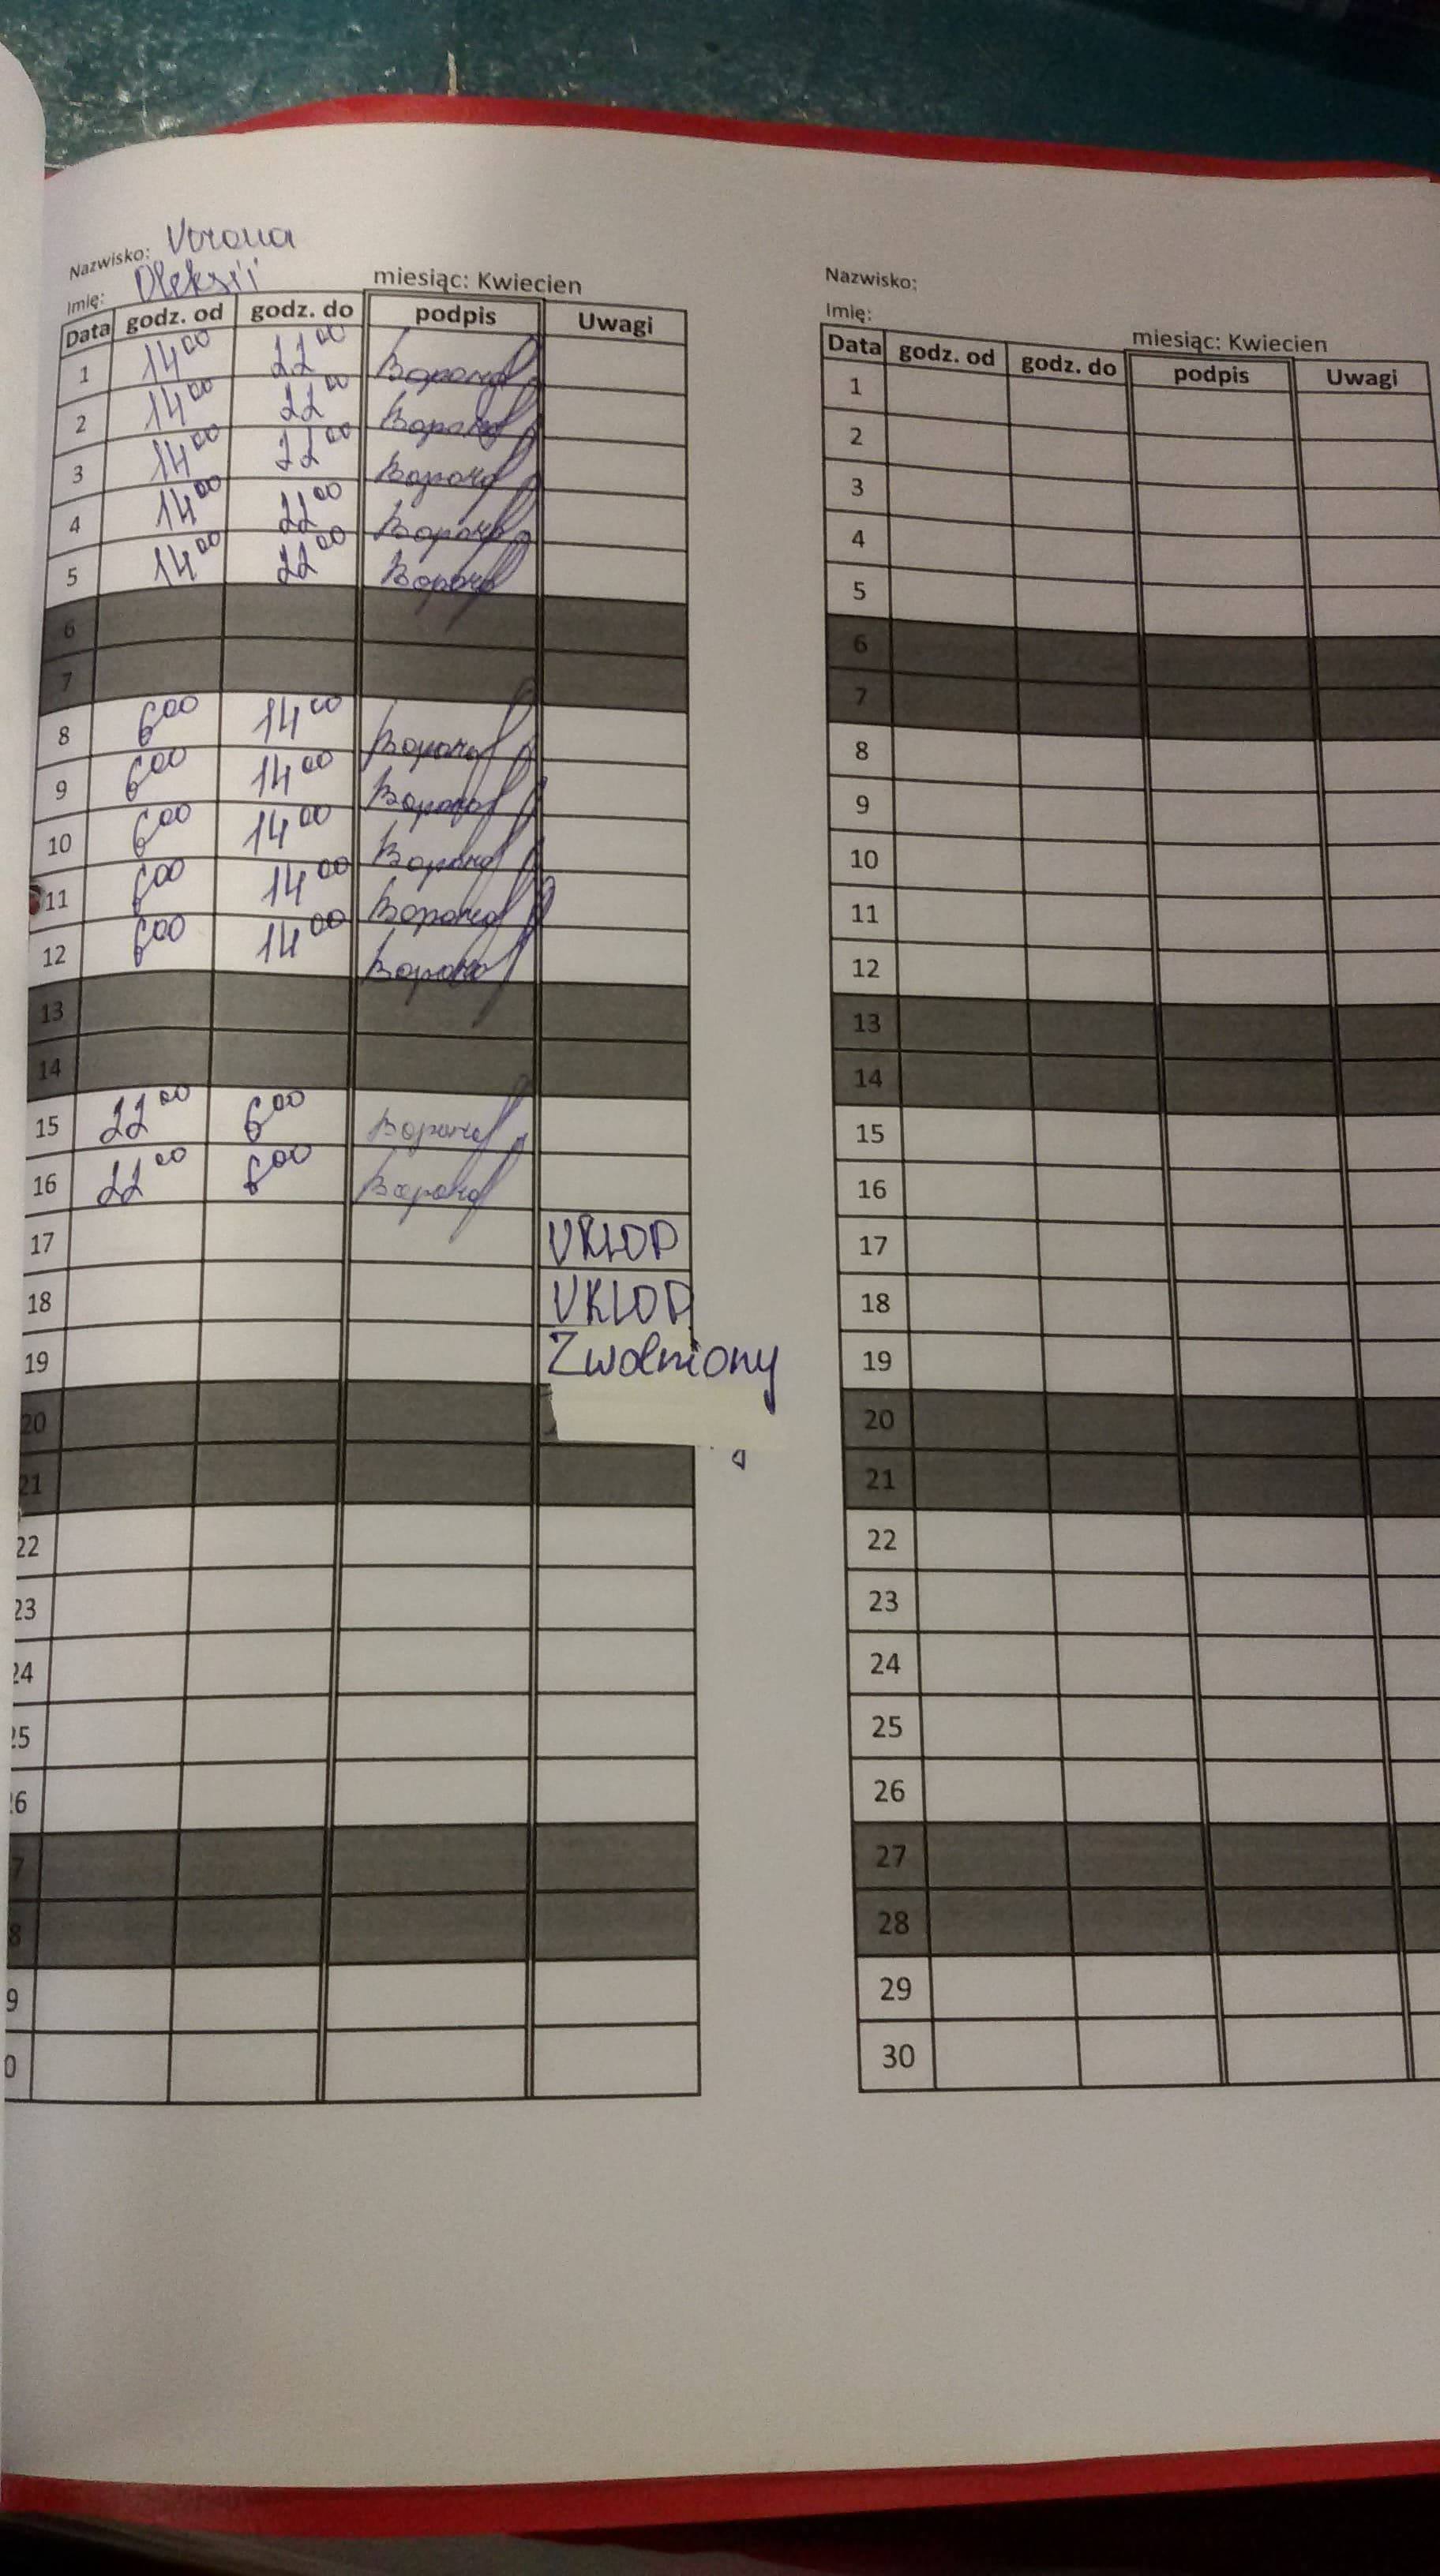 Nazwisko: Vorona
Imię: Oleksii miesiąc: Kwiecien
Data godz. od godz. do podpis Uwagi
1 14 00 22 00 Ворона
2 14 00 22 00 Ворона
3 14 00 22 00 Ворона
4 14 00 22 00 Ворона
5 14 00 22 00 Ворона
6
7
8 6 00 14 00 Ворона
9 6 00 14 00 Ворона
10 6 00 14 00 Ворона
11 6 00 14 00 Ворона
12 6 00 14 00 Ворона
13
14
15 22 00 6 00 Ворона
16 22 00 6 00 Ворона
17 URLOP
18 URLOP
19 Zwolniony
20
21
22
23
24
25
26
7
8
9
0
Nazwisko:
Imię: miesiąc: Kwiecien
Data godz. od godz. do podpis Uwagi
1
2
3
4
5
6
7
8
9
10
11
12
13
14
15
16
17
18
19
20
21
22
23
24
25
26
27
28
29
30